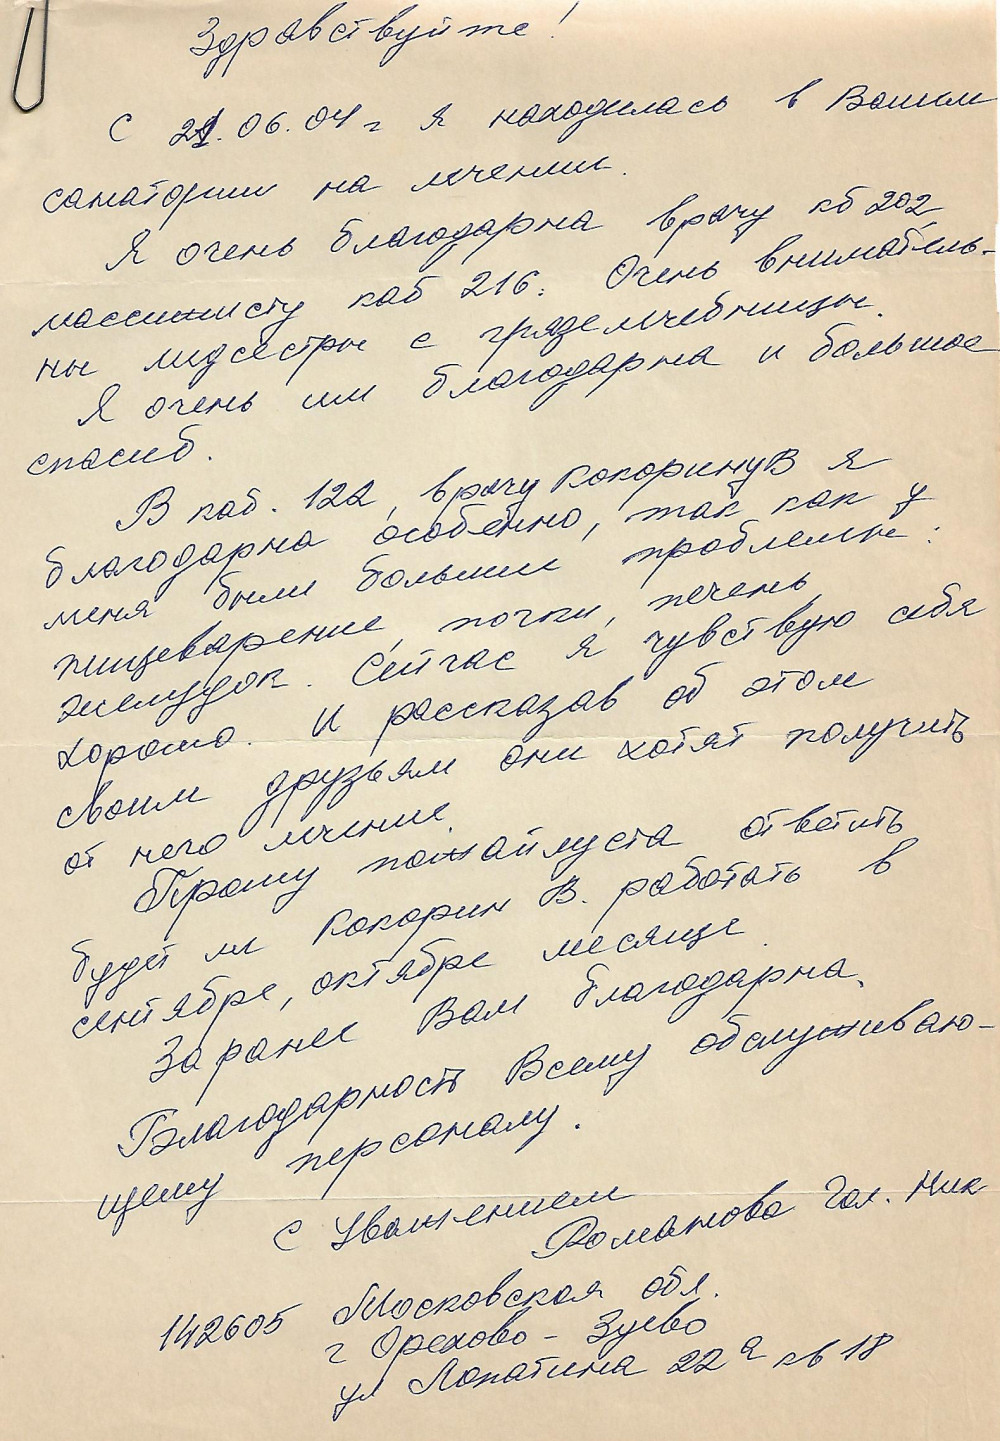 Здравствуйте!
С 21.06.04 г я находилась в Вашем
санатории на лечении.
Я очень благодарна врачу кб 202,
массажисту каб 216. Очень вниматель-
ны медсестры с грязелечебницы.
Я очень им благодарна и большое
спасиб.
В каб. 122, врачу Кокорину В я
благодарна особенно, так как у
меня были большие проблемы:
пищеварение, почки, печень,
желудок. Сейчас я чувствую себя
хорошо. И рассказав об этом
своим друзьям они хотят получить
от него лечение.
Прошу пожайлуста ответить
будет ли Кокорин В. работать в
сентябре, октябре месяце.
Заранее Вам благодарна.
Благодарность Всему обслуживаю-
щему персоналу.
С Уважением
Романова Гал. Ник
142605 Московская обл.
г Орехово-Зуево
ул Лопатина 22а кв 18